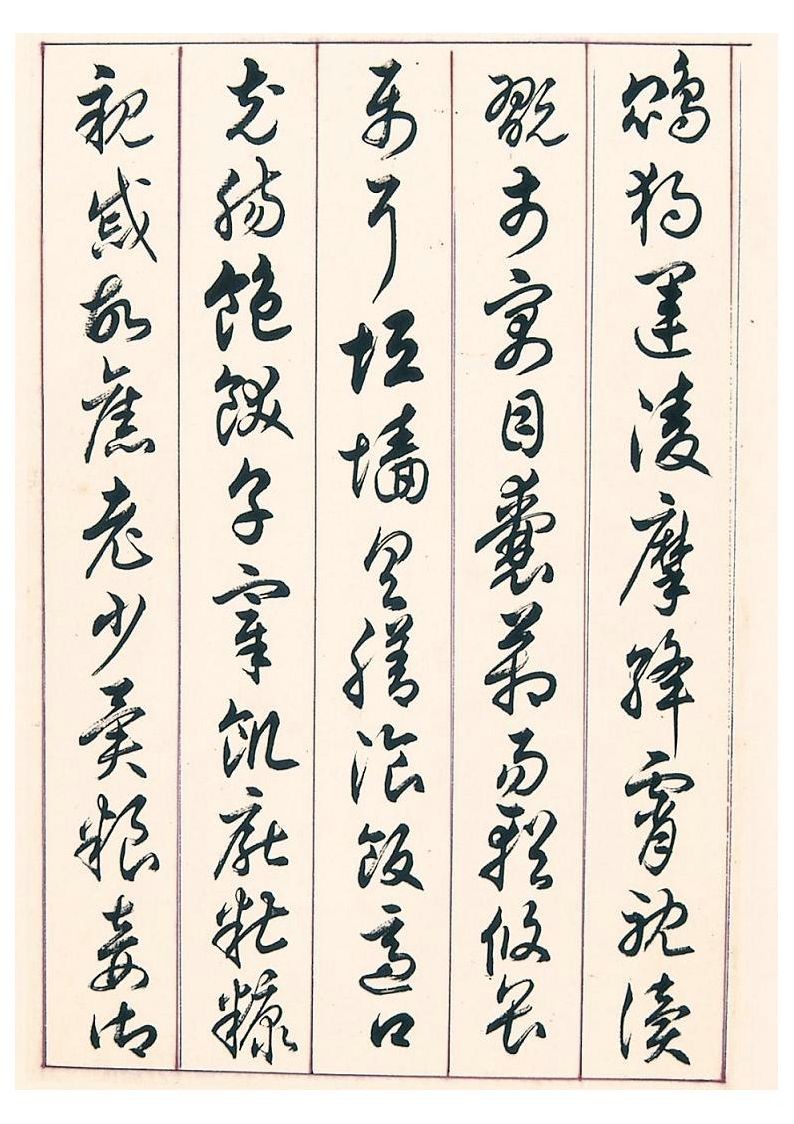 鹍独運凌摩绛霄耽讀
翫市寓目囊葙易輶攸畏
属耳垣墻具膳湌飯適口
充腸飽飫烹宰飢厭糟糠
親戚故舊老少異粮妾御